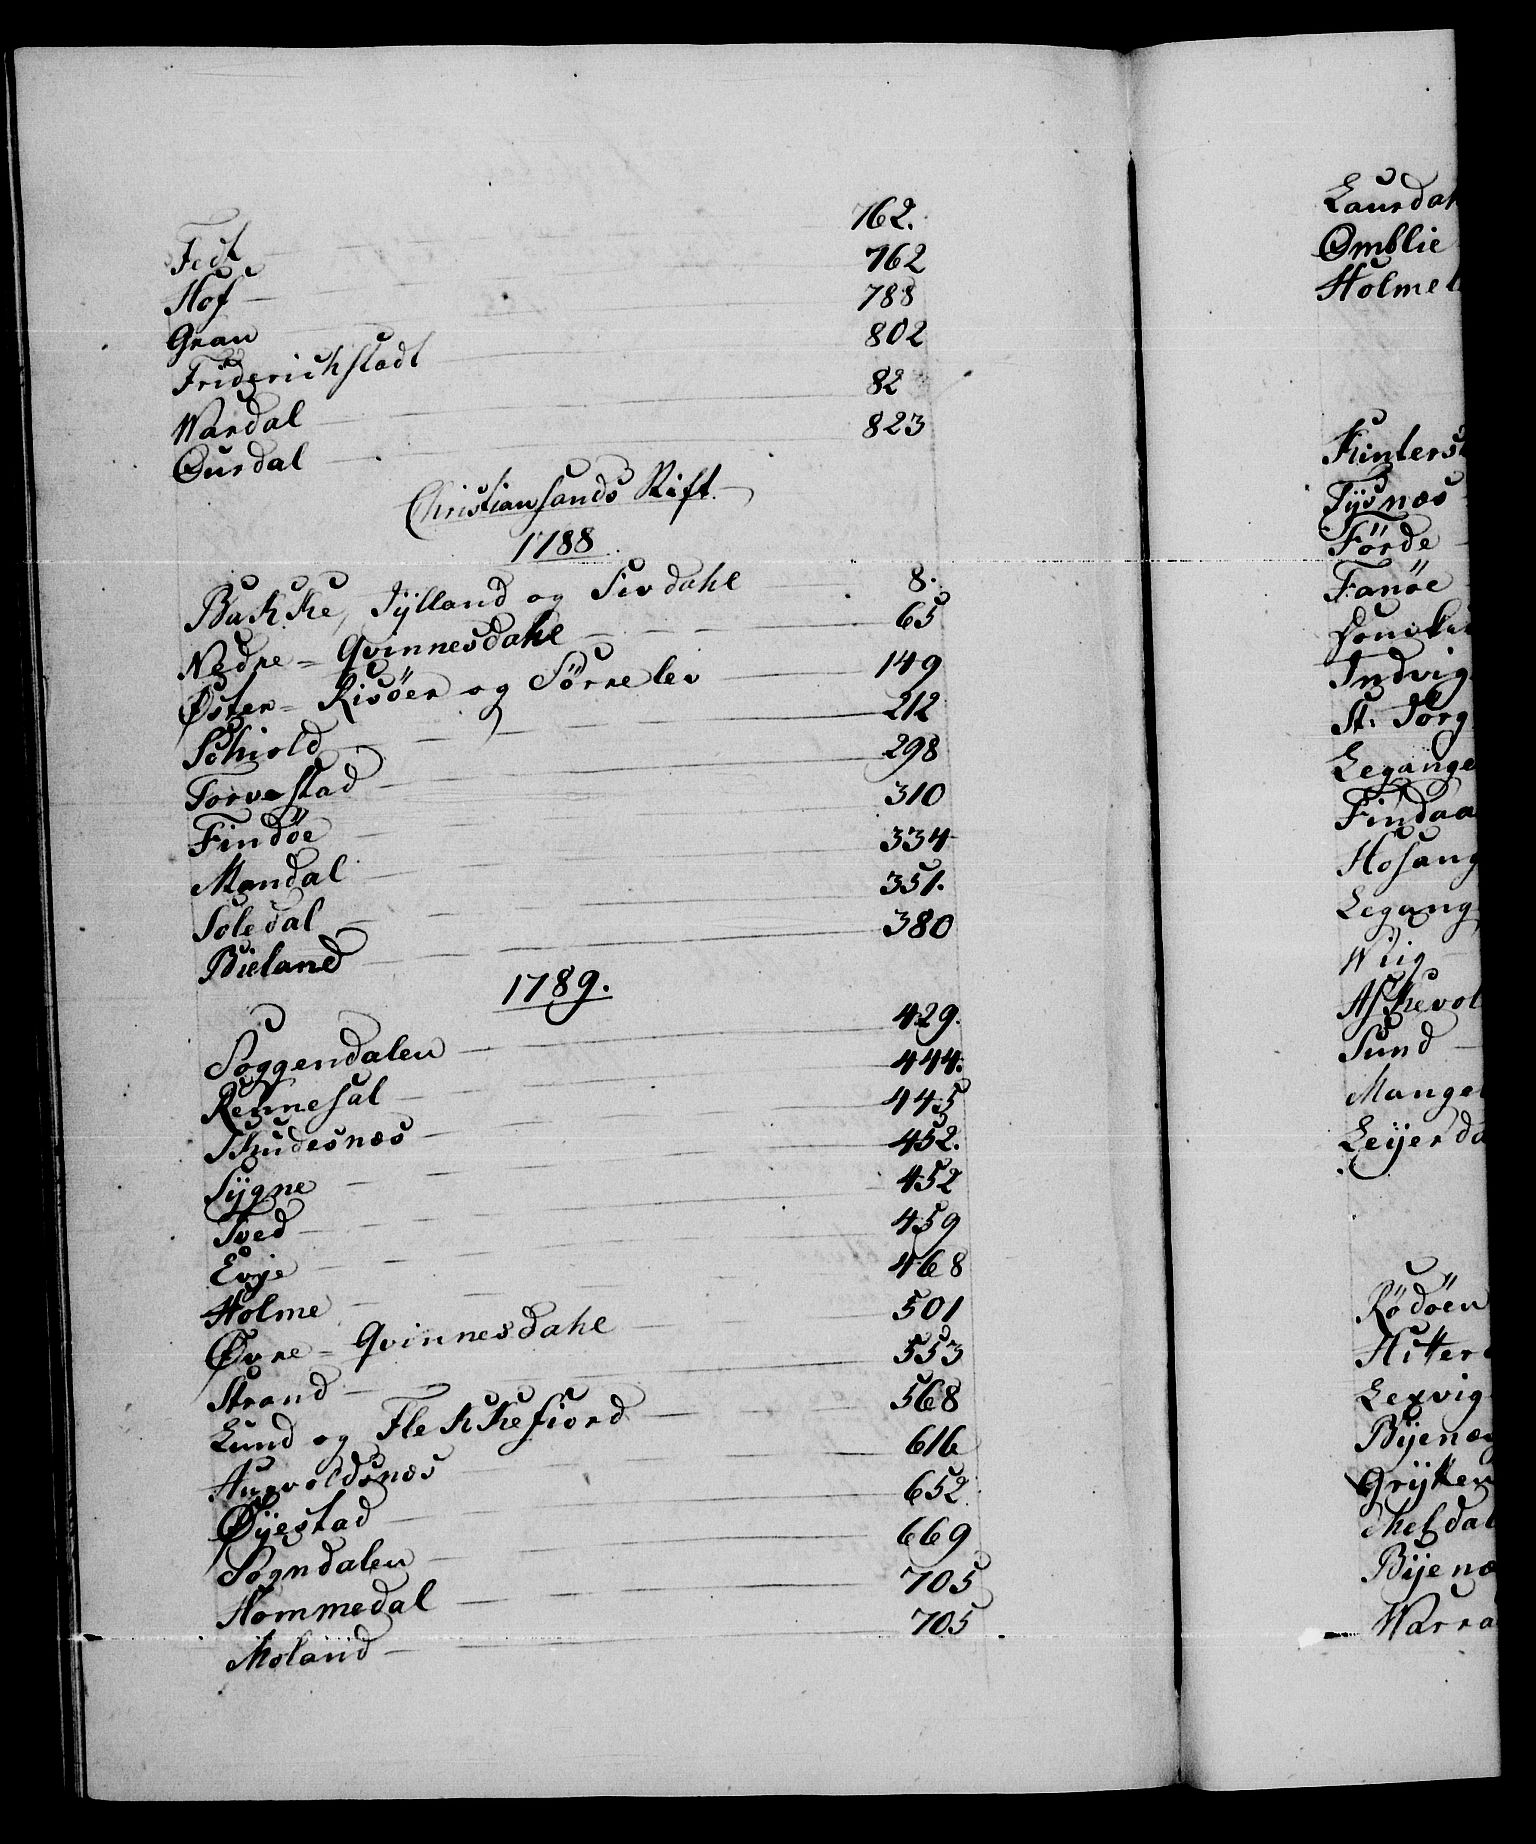 Fedt 762.
Hof 762
Gran 788
Friderichstadt 802
Wardal 82
Ourdal 823
Christiansands Stift.
1788.
Bakke, Tÿlland og Sirdahl 8.
Nedre-Qvinnesdahl 65
Øster-Risöer og Sörrelev 149
Schiold 212
Torvestad 298
Findöe 310
Mandal 334
Soledal 351.
Bieland 380
1789.
Soggendalen 429.
Rennesal 444.
Skudesnæs 445
Sÿgne 452.
Tved 452
Evje 459
Holme 468
Øvre-Qvinnesdahl 501
Strand 553
Lund og Flekkefiord 568
Augvoldsnæs 616
Øÿestad 652
Sogndalen 669
Hommedal 705
Moland 705
Laurdah
Omblie
Holme
Kinters
Tÿsnæs
Förde
Fanöe
Indvig
St. Jörg
Legange
Findaa
Hosang
Legang
Wiig
Askevol
Sund
Mange
Leÿerda
Rödöen
Hitter
Lexvig
Bÿenæs
Grÿtten
Mesdal
Bÿenæ
Warra